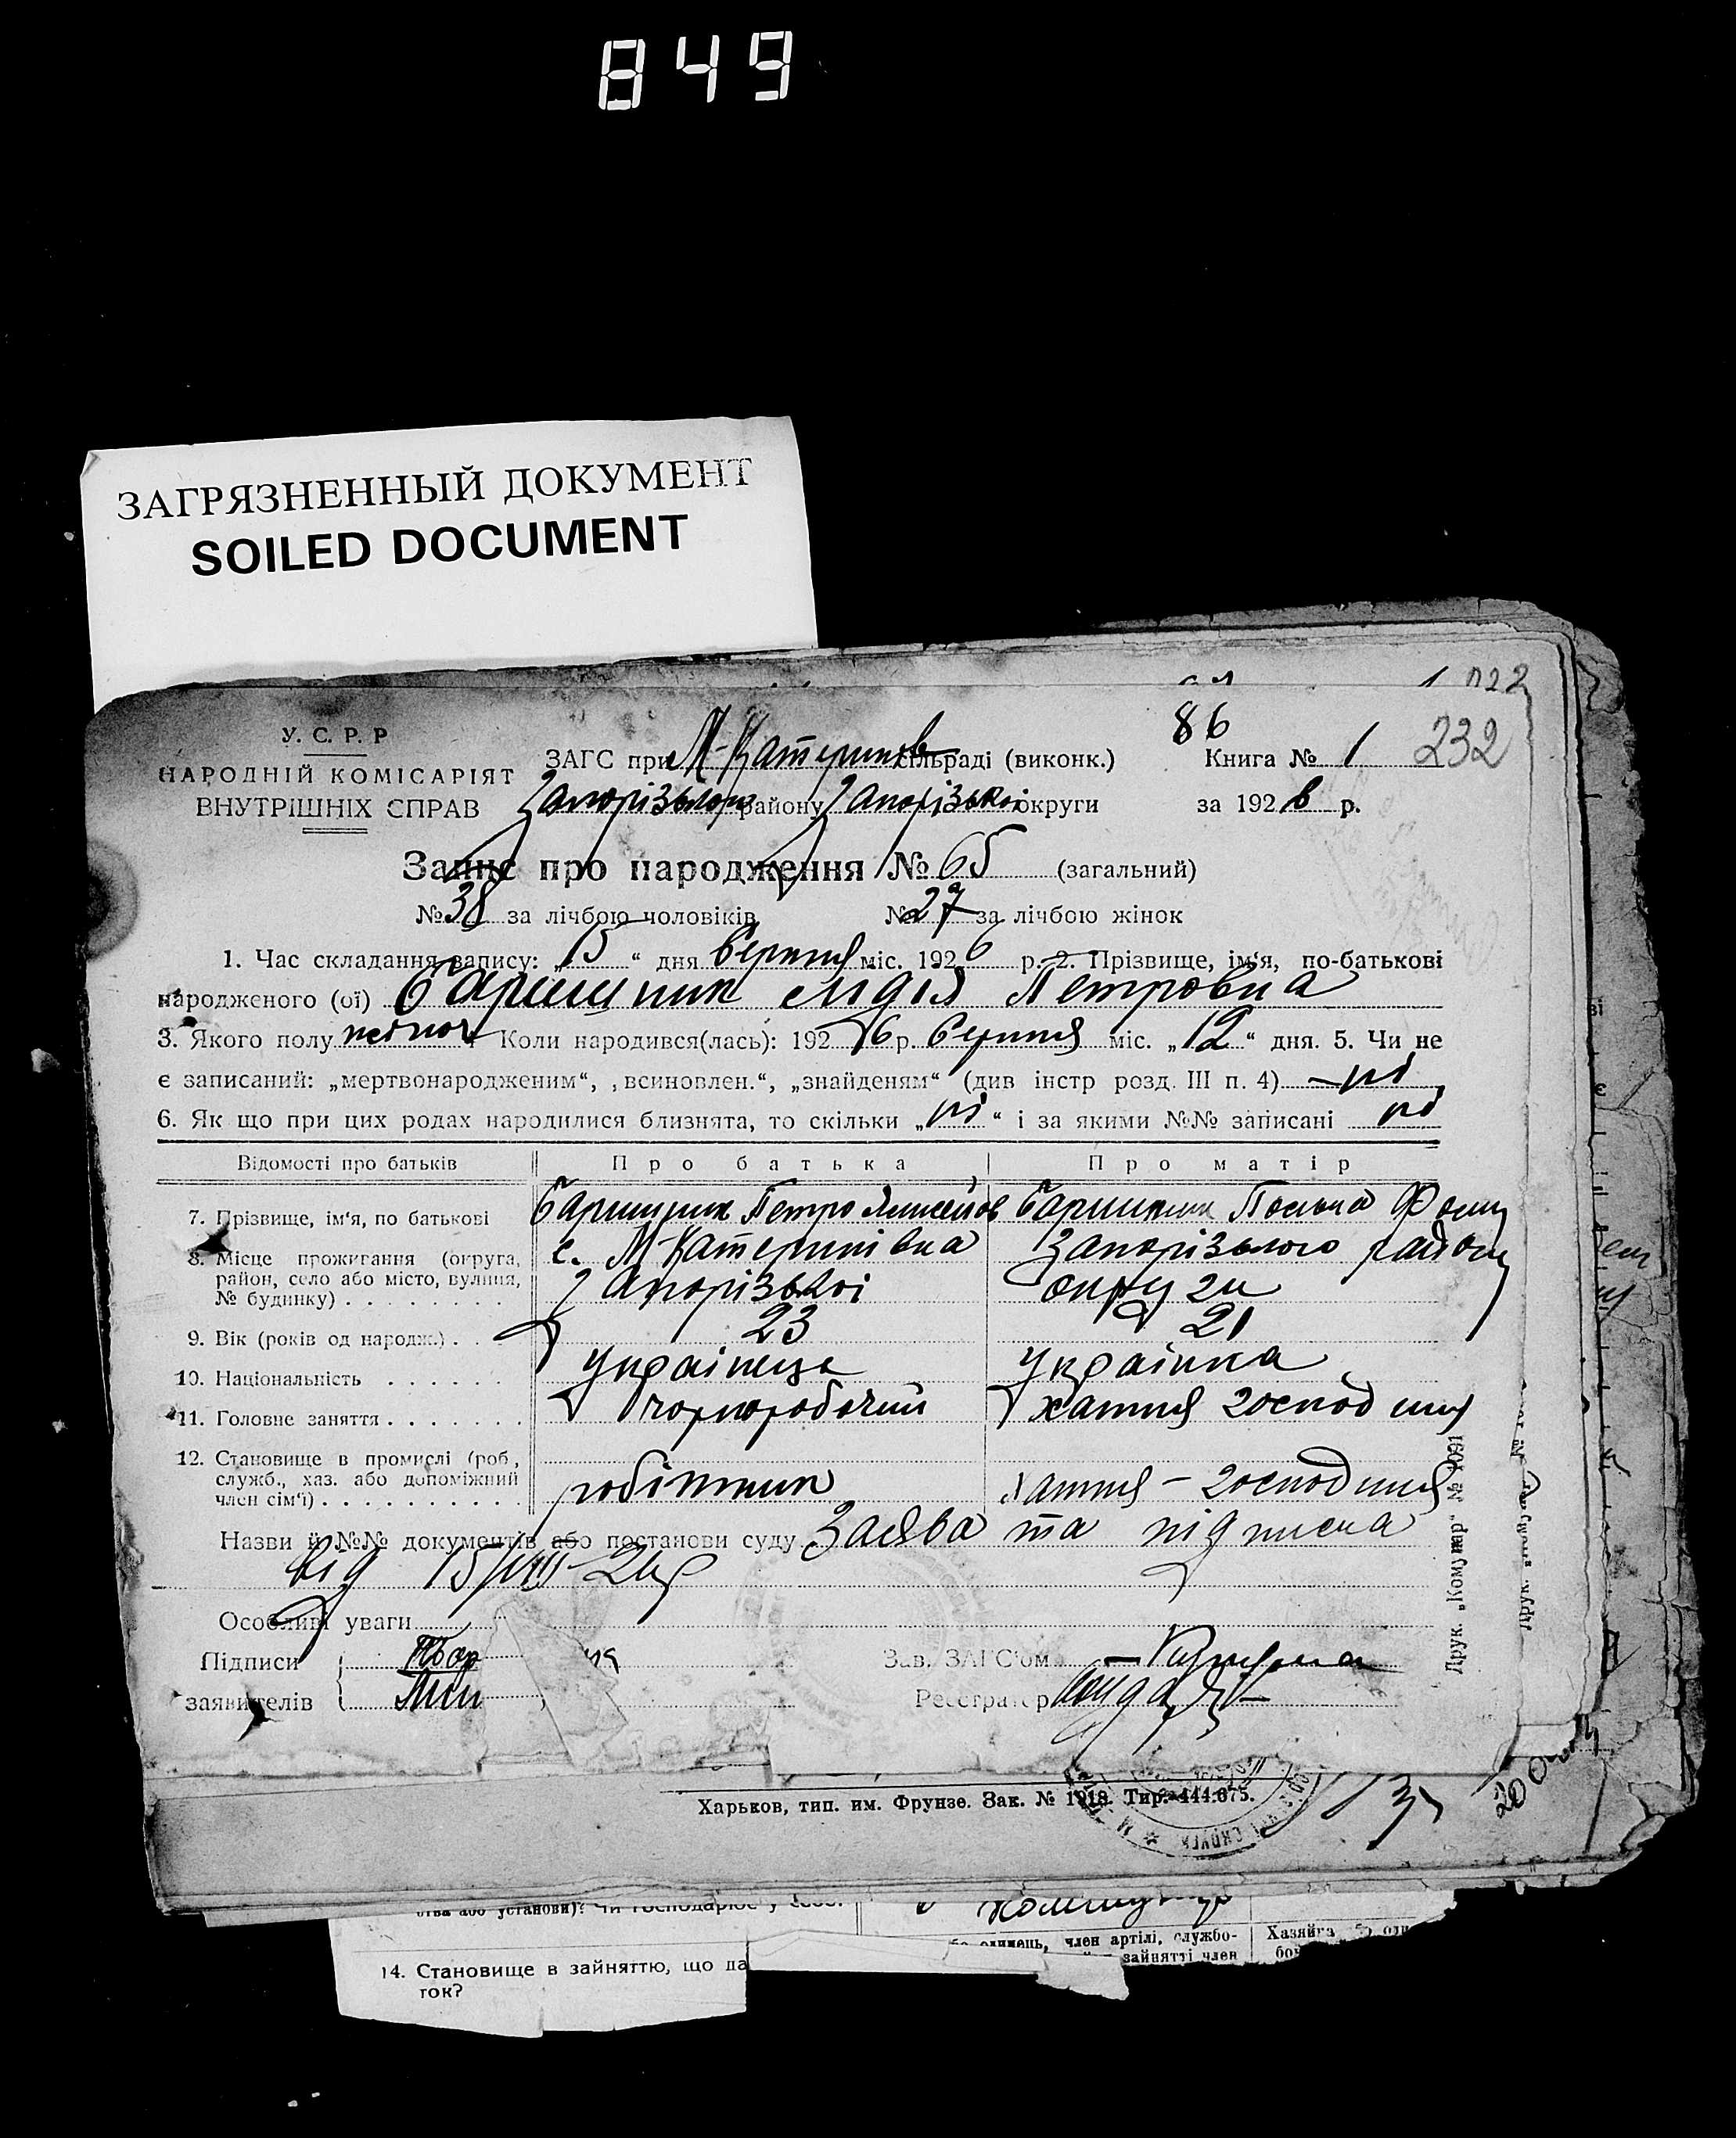 849
ЗАГРЯЗНЕННЫЙ ДОКУМЕНТ
SOILED DOCUMENT
86
232
У. С. Р. Р
НАРОДНІЙ КОМІСАРІЯТ
ВНУТРІШНІХ СПРАВ
ЗАГС при М-Катеринів сільраді (виконк.) Книга № 1
Запорізького району Запорізької округи за 1926 р.
Запис про народження № 65 (загальний)
№ 38 за лічбою чоловіків № 27 за лічбою жінок
1. Час складання запису: „15“ дня Серпня міс. 1926 р. 2. Прізвище, ім‘я, по-батькові
народженого (ої) Лидія Петровна
3. Якого полу жіноч 4 Коли народився(лась): 1926 р. Серпня міс. „12“ дня. 5. Чи не
є записаний: „мертвонародженим“, „всиновлен.“, „знайденям“ (див інстр розд. III п. 4) – ні
6. Як що при цих родах народилися близнята, то скільки „ні“ і за якими №№ записані ні
Відомості про батьків Про батька Про матір
7. Прізвище, ім‘я, по батькові Петро
8. Місце прожигання (округа, район, село або місто, вулиця, № будинку) с. М-Катеринівка Запорізького району
Запорізької округи
9. Вік (років од народж.) 23 21
10. Національність Українець Українка
11. Головне заняття чорноробочий хатня господиня
12. Становище в промислі (роб, служб., хаз. або допоміжний член сім‘ї) робітник хатня – господиня
Назви й №№ документів або постанови суду Заява та підписка
від 15/VIII-26р
Особливі уваги
Підписи Зав. ЗАГС‘ом
заявителів Реєстратор
Друк. „Комунар“ № 1091
Харьков, тип. им. Фрунзе. Зак. № 1918. Тир. 444.675.
ства або установи)? Чи господарює у себе.
член артілі, службо-
зайнятті член
Хазяйка
14. Становище в зайняттю, що да
ток?